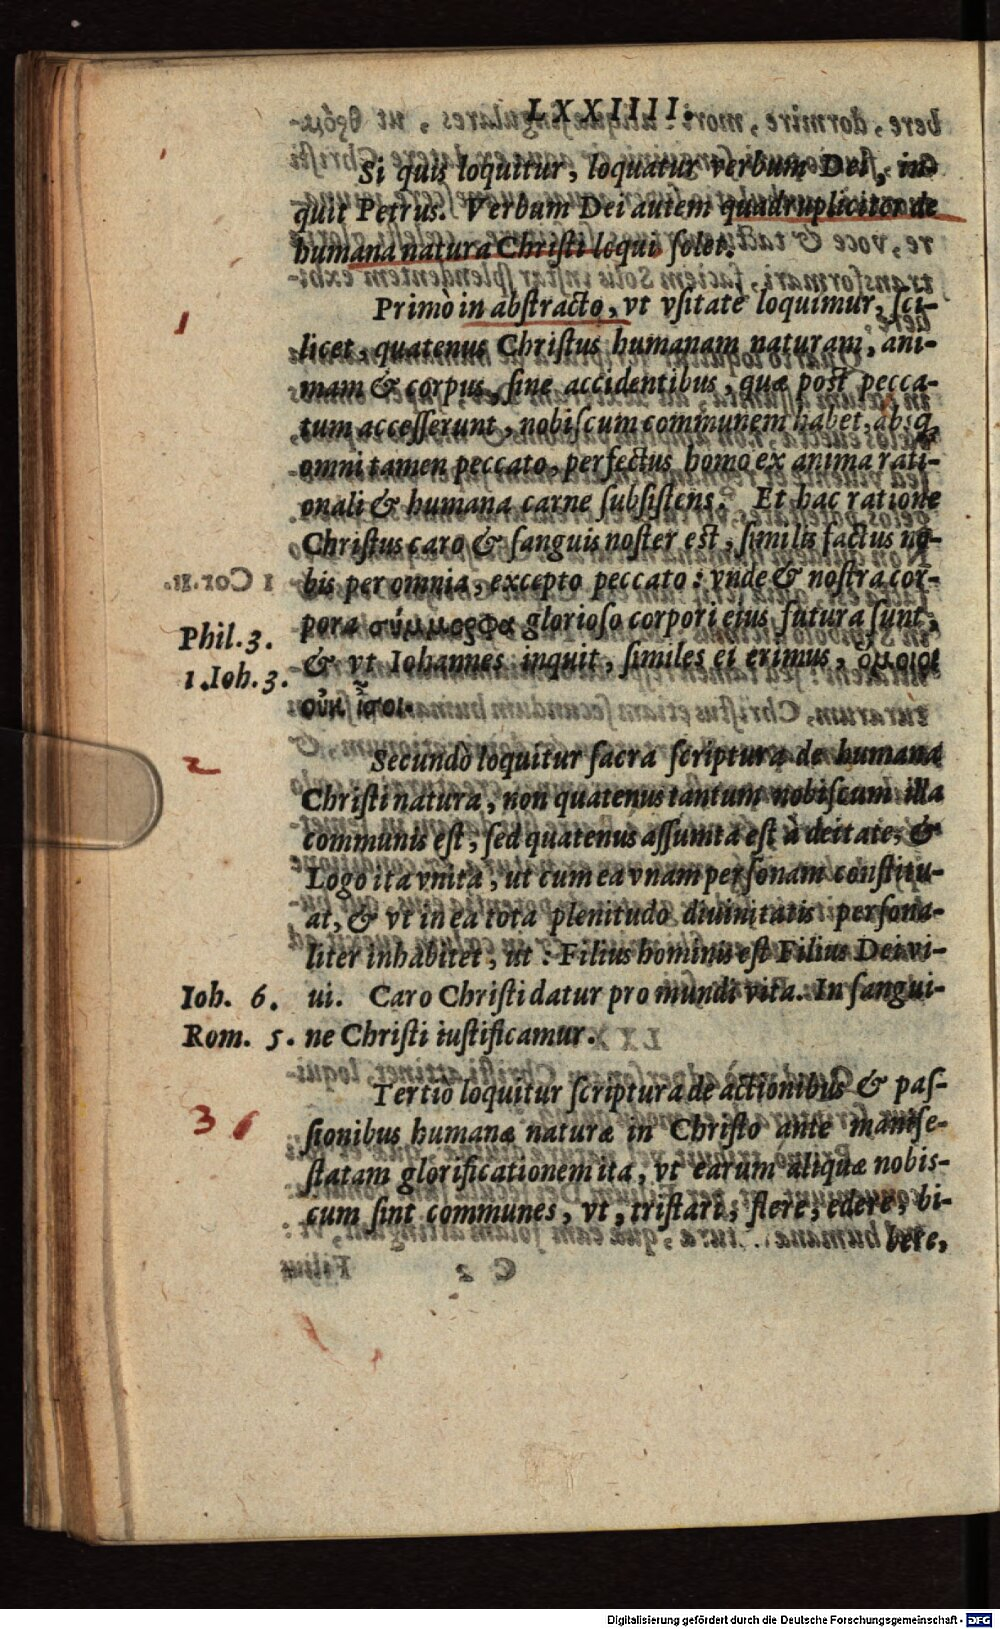 LXXIIII.
Si quis loquitur, loquatur verbum Dei, in-
quit Petrus. Verbum Dei autem quadrupliciter de
humana natura Christi loqui solet.
1
Primò in abstracto, vt vsitatè loquimur, sci-
licet, quatenus Christus humanam naturam, ani-
mam & corpus, sine accidentibus, quæ post pecca-
tum accesserunt, nobiscum communem habet, absq;
omni tamen peccato, perfectus homo ex anima rati-
onali & humana carne subsistens. Et hac ratione
Christus caro & sanguis noster est, similis factus no-
bis per omnia, excepto peccato: vnde & nostra cor-
Phil. 3. pora σύμμορφα glorioso corpori eius futura sunt,
1. Ioh. 3. & vt Iohannes inquit, similes ei erimus, ὅμοιοι
οὐκ ἴσοι.
2
Secundò loquitur sacra scriptura de humana
Christi natura, non quatenus tantum nobiscum illa
communis est, sed quatenus assumta est à deitate, &
Logo ita vnita, ut cum ea vnam personam constitu-
at, & vt in ea tota plenitudo diuinitatis persona-
liter inhabitet, ut: Filius hominis est Filius Dei vi-
Ioh. 6. ui. Caro Christi datur pro mundi vita. In sangui-
Rom. 5. ne Christi iustificamur.
3
Tertiò loquitur scriptura de actionibus & pas-
sionibus humanæ naturæ in Christo ante manife-
statam glorificationem ita, vt earum aliquæ nobis-
cum sint communes, vt, tristari, flere, edere, bi-
bere,
Digitalisierung gefördert durch die Deutsche Forschungsgemeinschaft - DFG